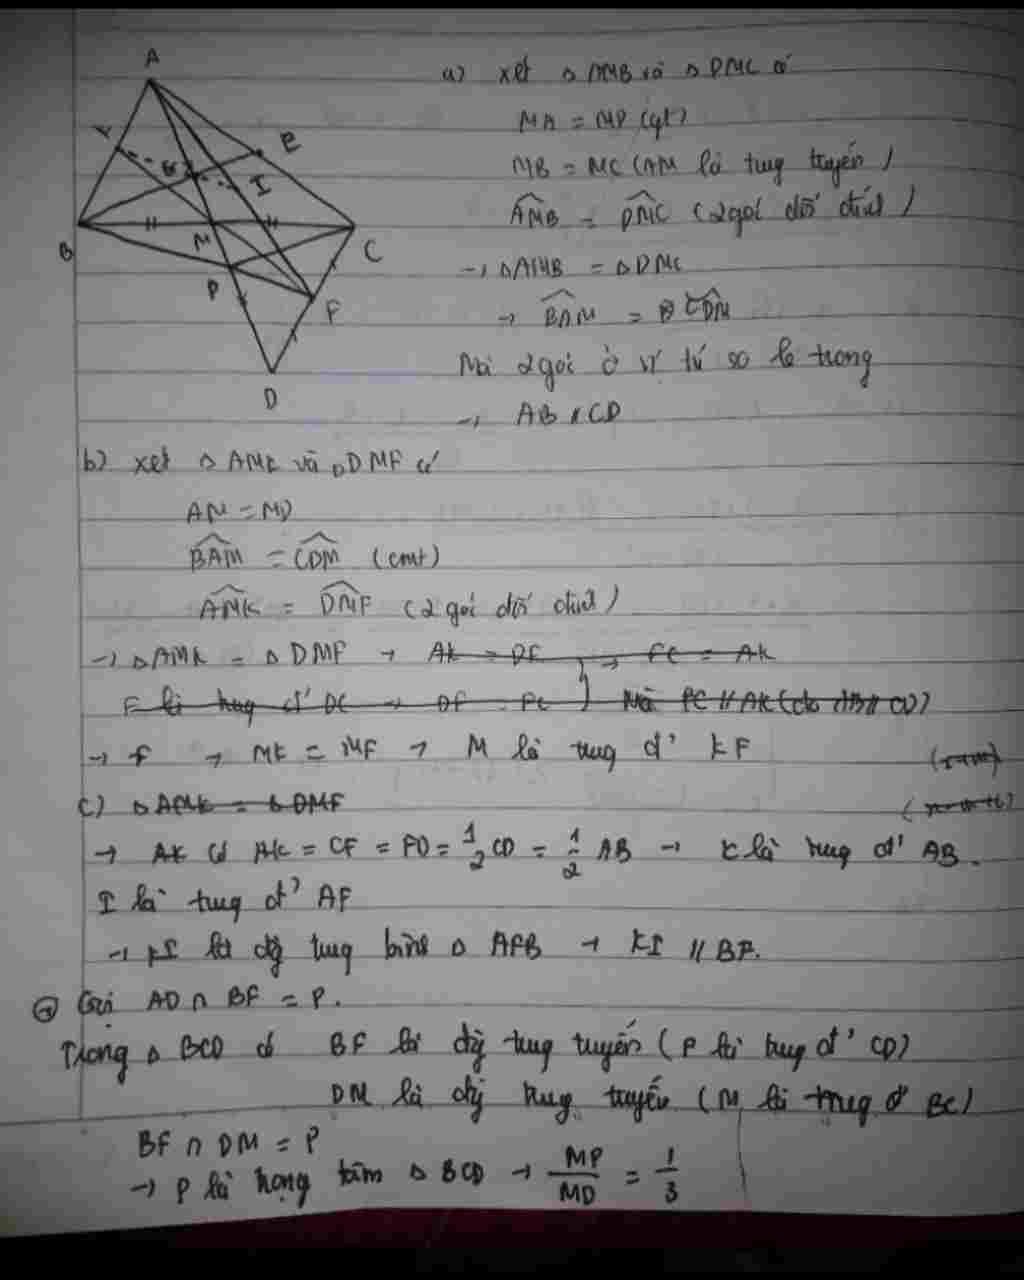 A
K
E
G
I
B
M
C
P
F
D
a) xét △ AMB và △ DMC có
MA = MD (gt)
MB = MC (AM là trung tuyến)
AMB = DMC (2 góc đối đỉnh)
→ △AMB = △DMC
→ BAM = CDM
Mà 2 góc ở vị trí so le trong
→ AB // CD
b) xét △ AMK và △ DMF có
AM = MD
BAM = CDM (cmt)
AMK = DMF (2 góc đối đỉnh)
→ △AMK = △DMF → AK = DF → FC = AK
F là trung đ' DC → DF = FC } Mà FC // AK (do AB // CD)
→ f → MK = MF → M là trung đ' KF
c) △ AMK = △ DMF
→ AK có AK = CF = FD = 1/2 CD = 1/2 AB → K là trung đ' AB.
I là trung đ' AF
→ KI là đg trung bình △ AFB → KI // BF.
Gọi AD ∩ BF = P.
Trong △ BCD có BF là đg trung tuyến (F là trung đ' CD)
DM là đg trung tuyến (M là trung đ' BC)
BF ∩ DM = P
→ P là trọng tâm △ BCD → MP/MD = 1/3